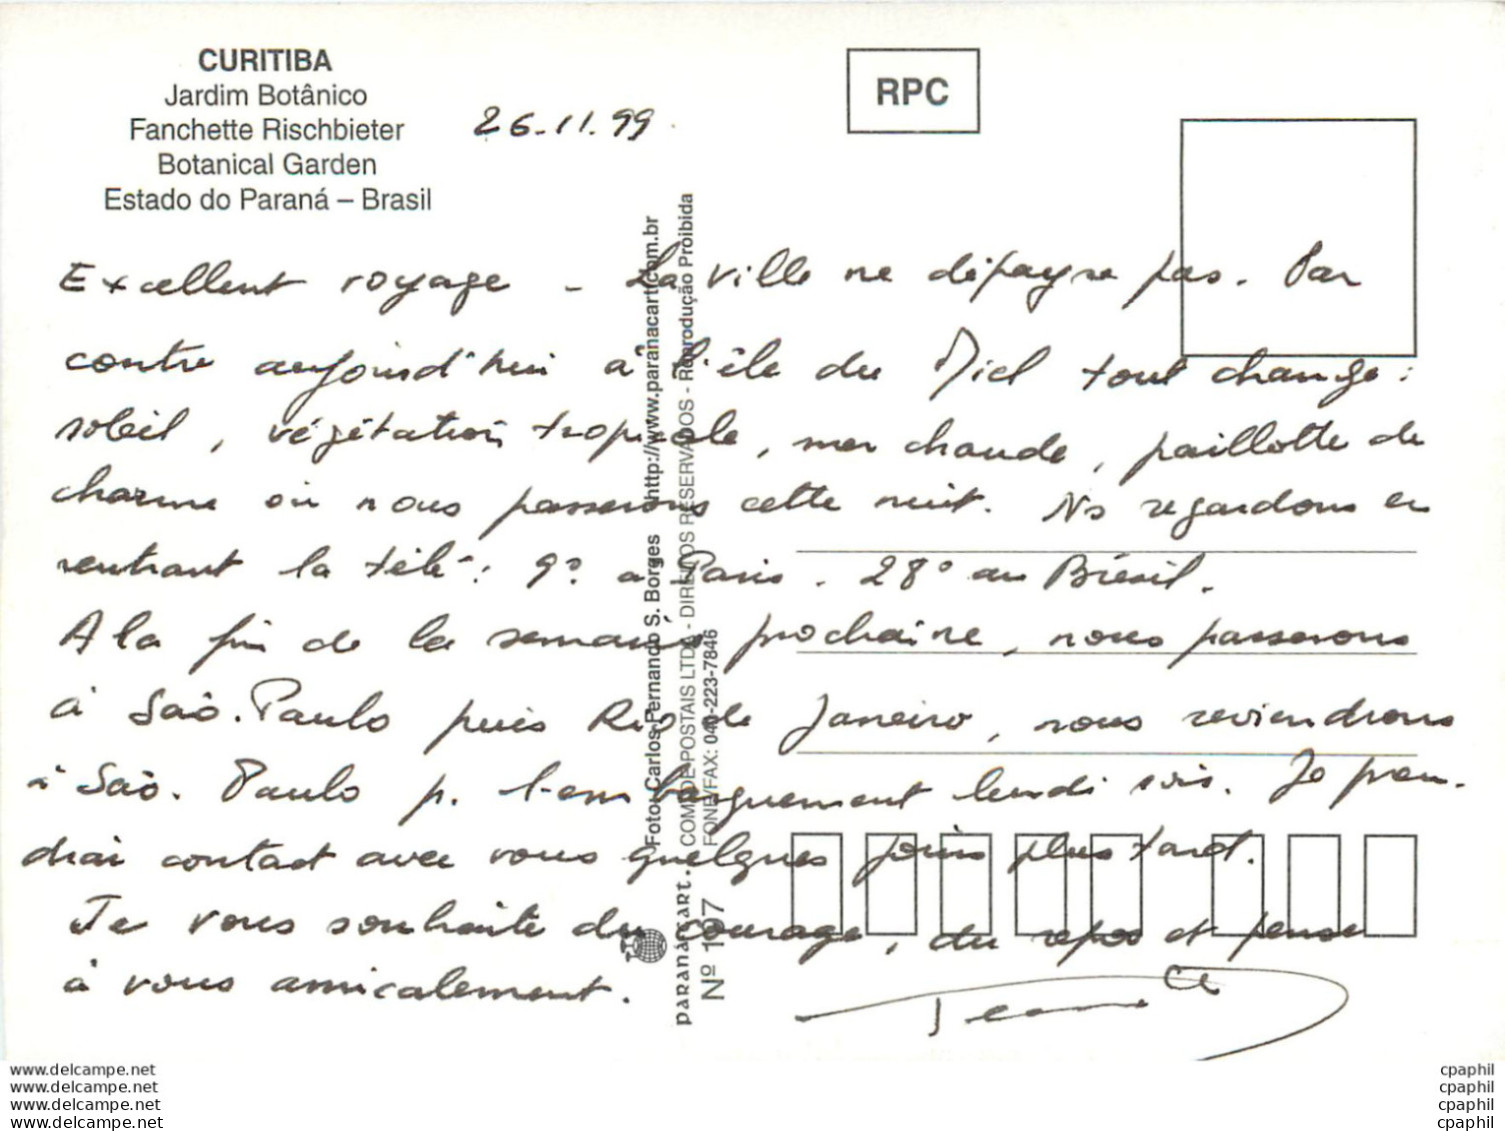 CURITIBA
Jardim Botânico
Fanchette Rischbieter
Botanical Garden
Estado do Paraná – Brasil
26.11.99
RPC
Excellent voyage - La ville ne dépayse pas. Par
contre aujourd'hui à l'île du Miel tout change :
soleil, végétation tropicale, mer chaude, paillotte de
charme où nous passerons cette nuit. Ns regardons en
rentrant la télé : 9° à Paris. 28° au Brésil.
A la fin de la semaine prochaine, nous passerons
à Saô. Paulo puis Rio de Janeiro, nous reviendrons
à Saô. Paulo p. l'embarquement lundi soir. Je pren-
drai contact avec vous quelques jours plus tard.
Je vous souhaite du courage, du repos et pense
à vous amicalement.
Foto: Carlos Fernando S. Borges http://www.paranacart.com.br
COM. DE POSTAIS LTDA - DIREITOS RESERVADOS - Reprodução Proibida
FONE/FAX: 040-223-7846
PARANÁCART.
Nº 197
www.delcampe.net
www.delcampe.net
www.delcampe.net
www.delcampe.net
cpaphil
cpaphil
cpaphil
cpaphil